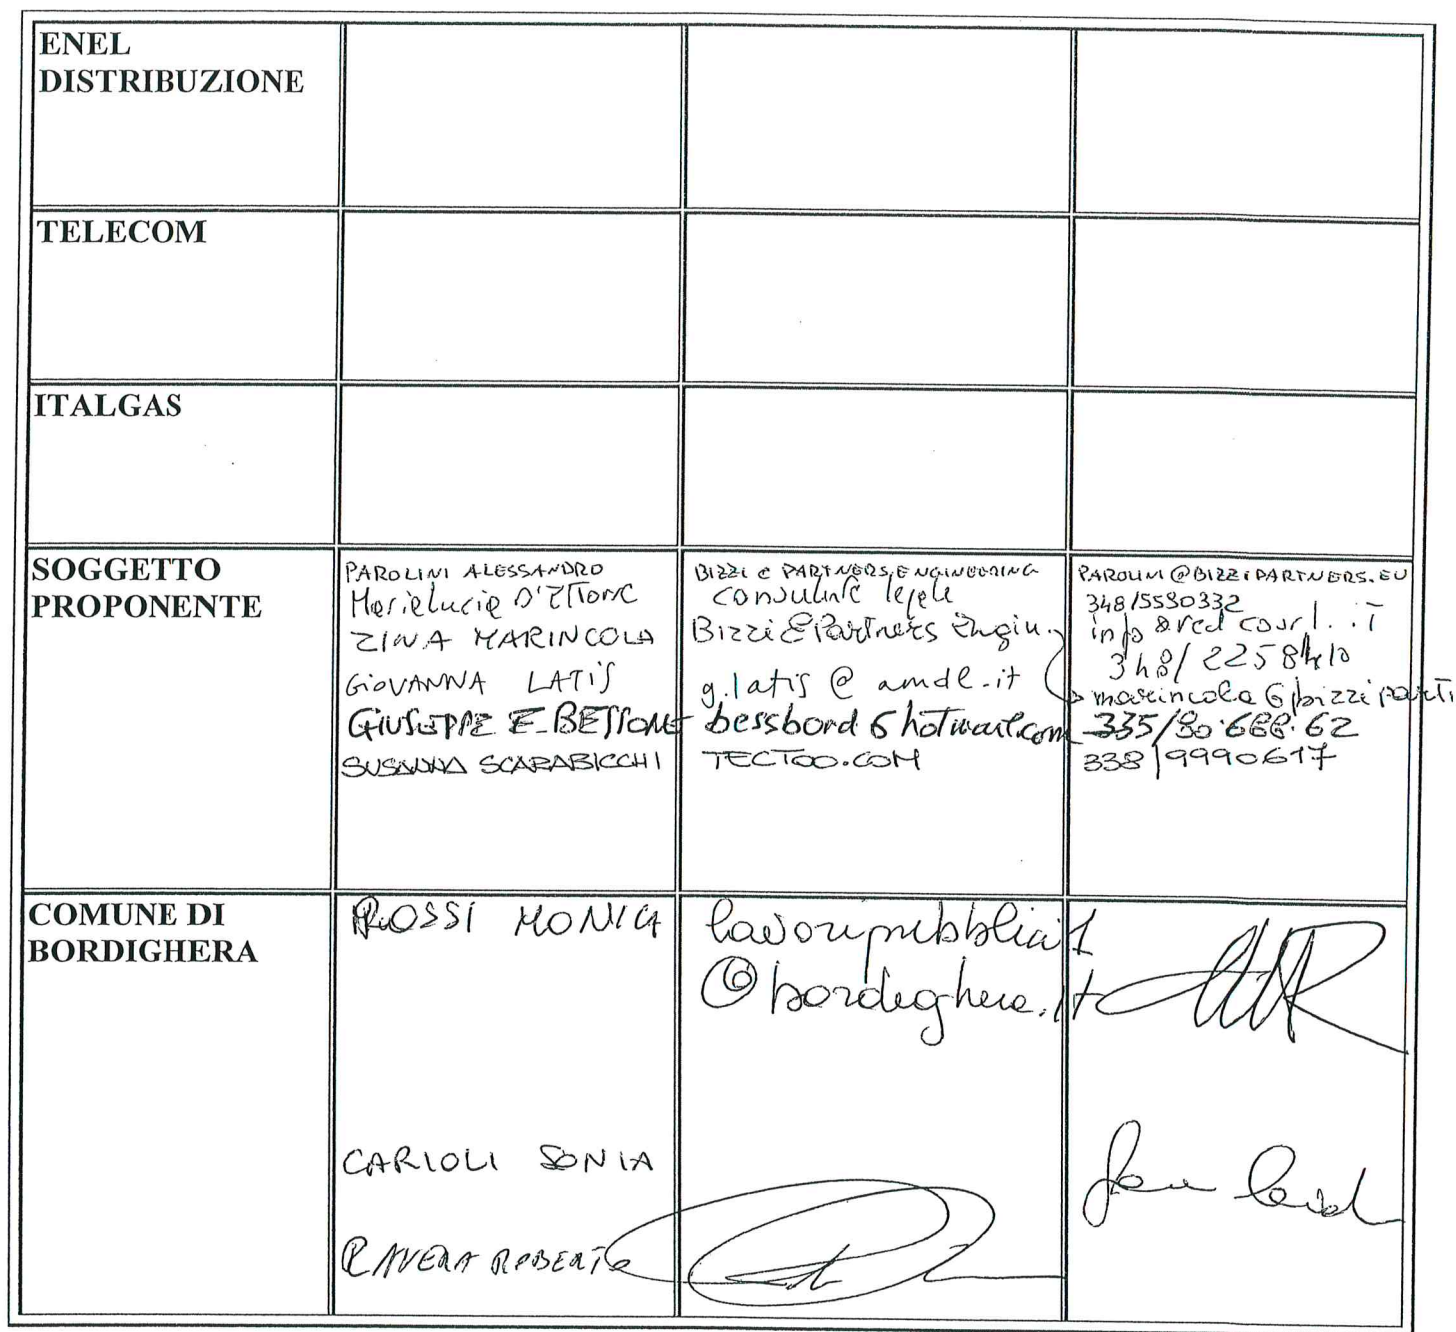 ENEL
DISTRIBUZIONE
TELECOM
ITALGAS
SOGGETTO
PROPONENTE
PAROLINI ALESSANDRO
Marielucia D'Ettorre
ZINA MARINCOLA
GIOVANNA LATIS
GIUSEPPE E. BESSONE
SUSANNA SCARABICCHI
BIZZI e PARTNERS ENGINEERING
consulente legale
Bizzi & Partners Engin.
g.latis @ amdl.it
bessbord @ hotmail.com
TECTOO.COM
PAROLINI@BIZZIPARTNERS.EU
348/5530332
348/2258410
marincola @ bizzi parti
335/80.688.62
338/9990617
COMUNE DI
BORDIGHERA
ROSSI MONICA
lavoripubblici1
@bordighera.it
CARIOLI SONIA
RAVERA ROBERTO